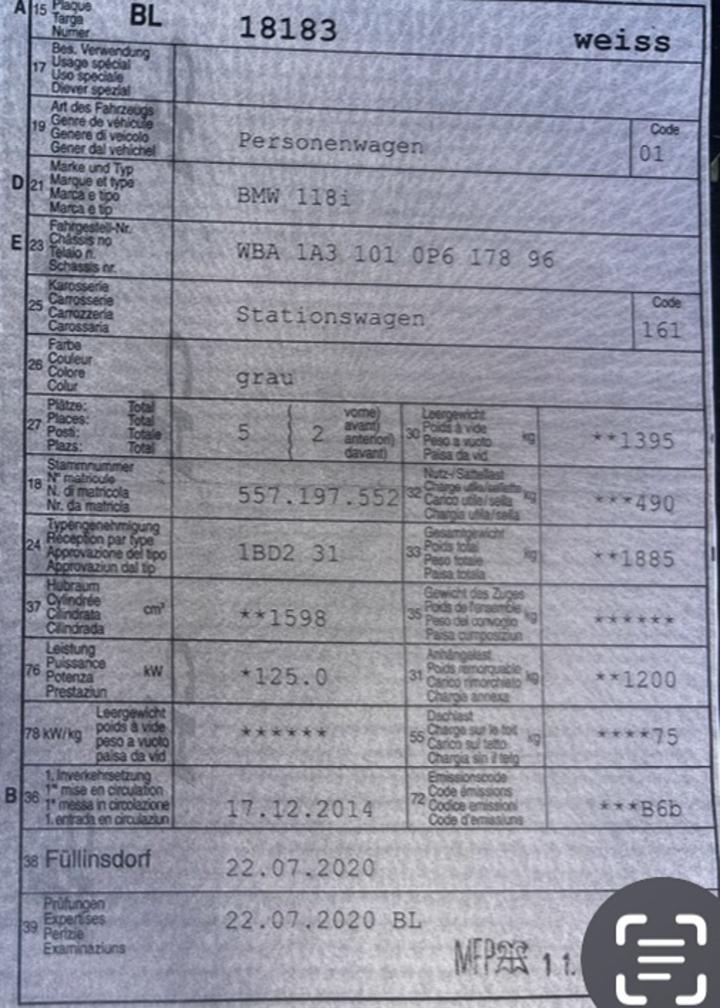 A 15 Plaque BL 18183 weiss
Targa
Numer
17 Bes. Verwendung
Usage spécial
Uso speciale
Diever spezial
19 Art des Fahrzeugs
Genre de véhicule
Genere di veicolo
Gener dal vehichel
Personenwagen
Code
01
D 21 Marke und Typ
Marque et type
Marca e tipo
Marca e tip
BMW 118i
E 23 Fahrgestell-Nr.
Châssis no
Telaio n.
Schassis nr.
WBA 1A3 101 0P6 I78 96
25 Karosserie
Carrosserie
Carrozzeria
Carossaria
Stationswagen
Code
161
26 Farbe
Couleur
Colore
Colur
grau
27 Plätze: Total
Places: Total
Posti: Totale
Plazs: Total
5 2
vorne)
avant)
anteriori)
davant)
30 Leergewicht
Poids à vide
Peso a vuoto kg
Paisa da vid
**1395
18 Stammnummer
N° matricule
N. di matricola
Nr. da matricla
557.197.552
32 Nutz-/Sattellast
Charge utile/sellette
Carico utile/sella kg
Chargia utila/sella
***490
24 Typengenehmigung
Réception par type
Approvazione del tipo
Approvaziun dal tip
1BD2 31
33 Gesamtgewicht
Poids total
Peso totale kg
Paisa totala
**1885
37 Hubraum
Cylindrée cm³
Cilindrata
Cilindrada
**1598
35 Gewicht des Zuges
Poids de l'ensemble
Peso del convoglio kg
Paisa cumposiziun
******
76 Leistung
Puissance kW
Potenza
Prestaziun
*125.0
31 Anhängelast
Poids remorquable
Carico rimorchiato kg
Chargia annexa
**1200
78 kW/kg Leergewicht
poids à vide
peso a vuoto
paisa da vid
******
55 Dachlast
Charge sur le toit
Carico sul tetto kg
Chargia sin il tetg
****75
B 36 1. Inverkehrsetzung
1re mise en circulation
1a messa in circolazione
1. entrada en circulaziun
17.12.2014
72 Emissionscode
Code émissions
Codice emissioni
Code d'emissiuns
***B6b
38 Füllinsdorf 22.07.2020
39 Prüfungen
Expertises
Perizie
Examinaziuns
22.07.2020 BL
MFP 11.